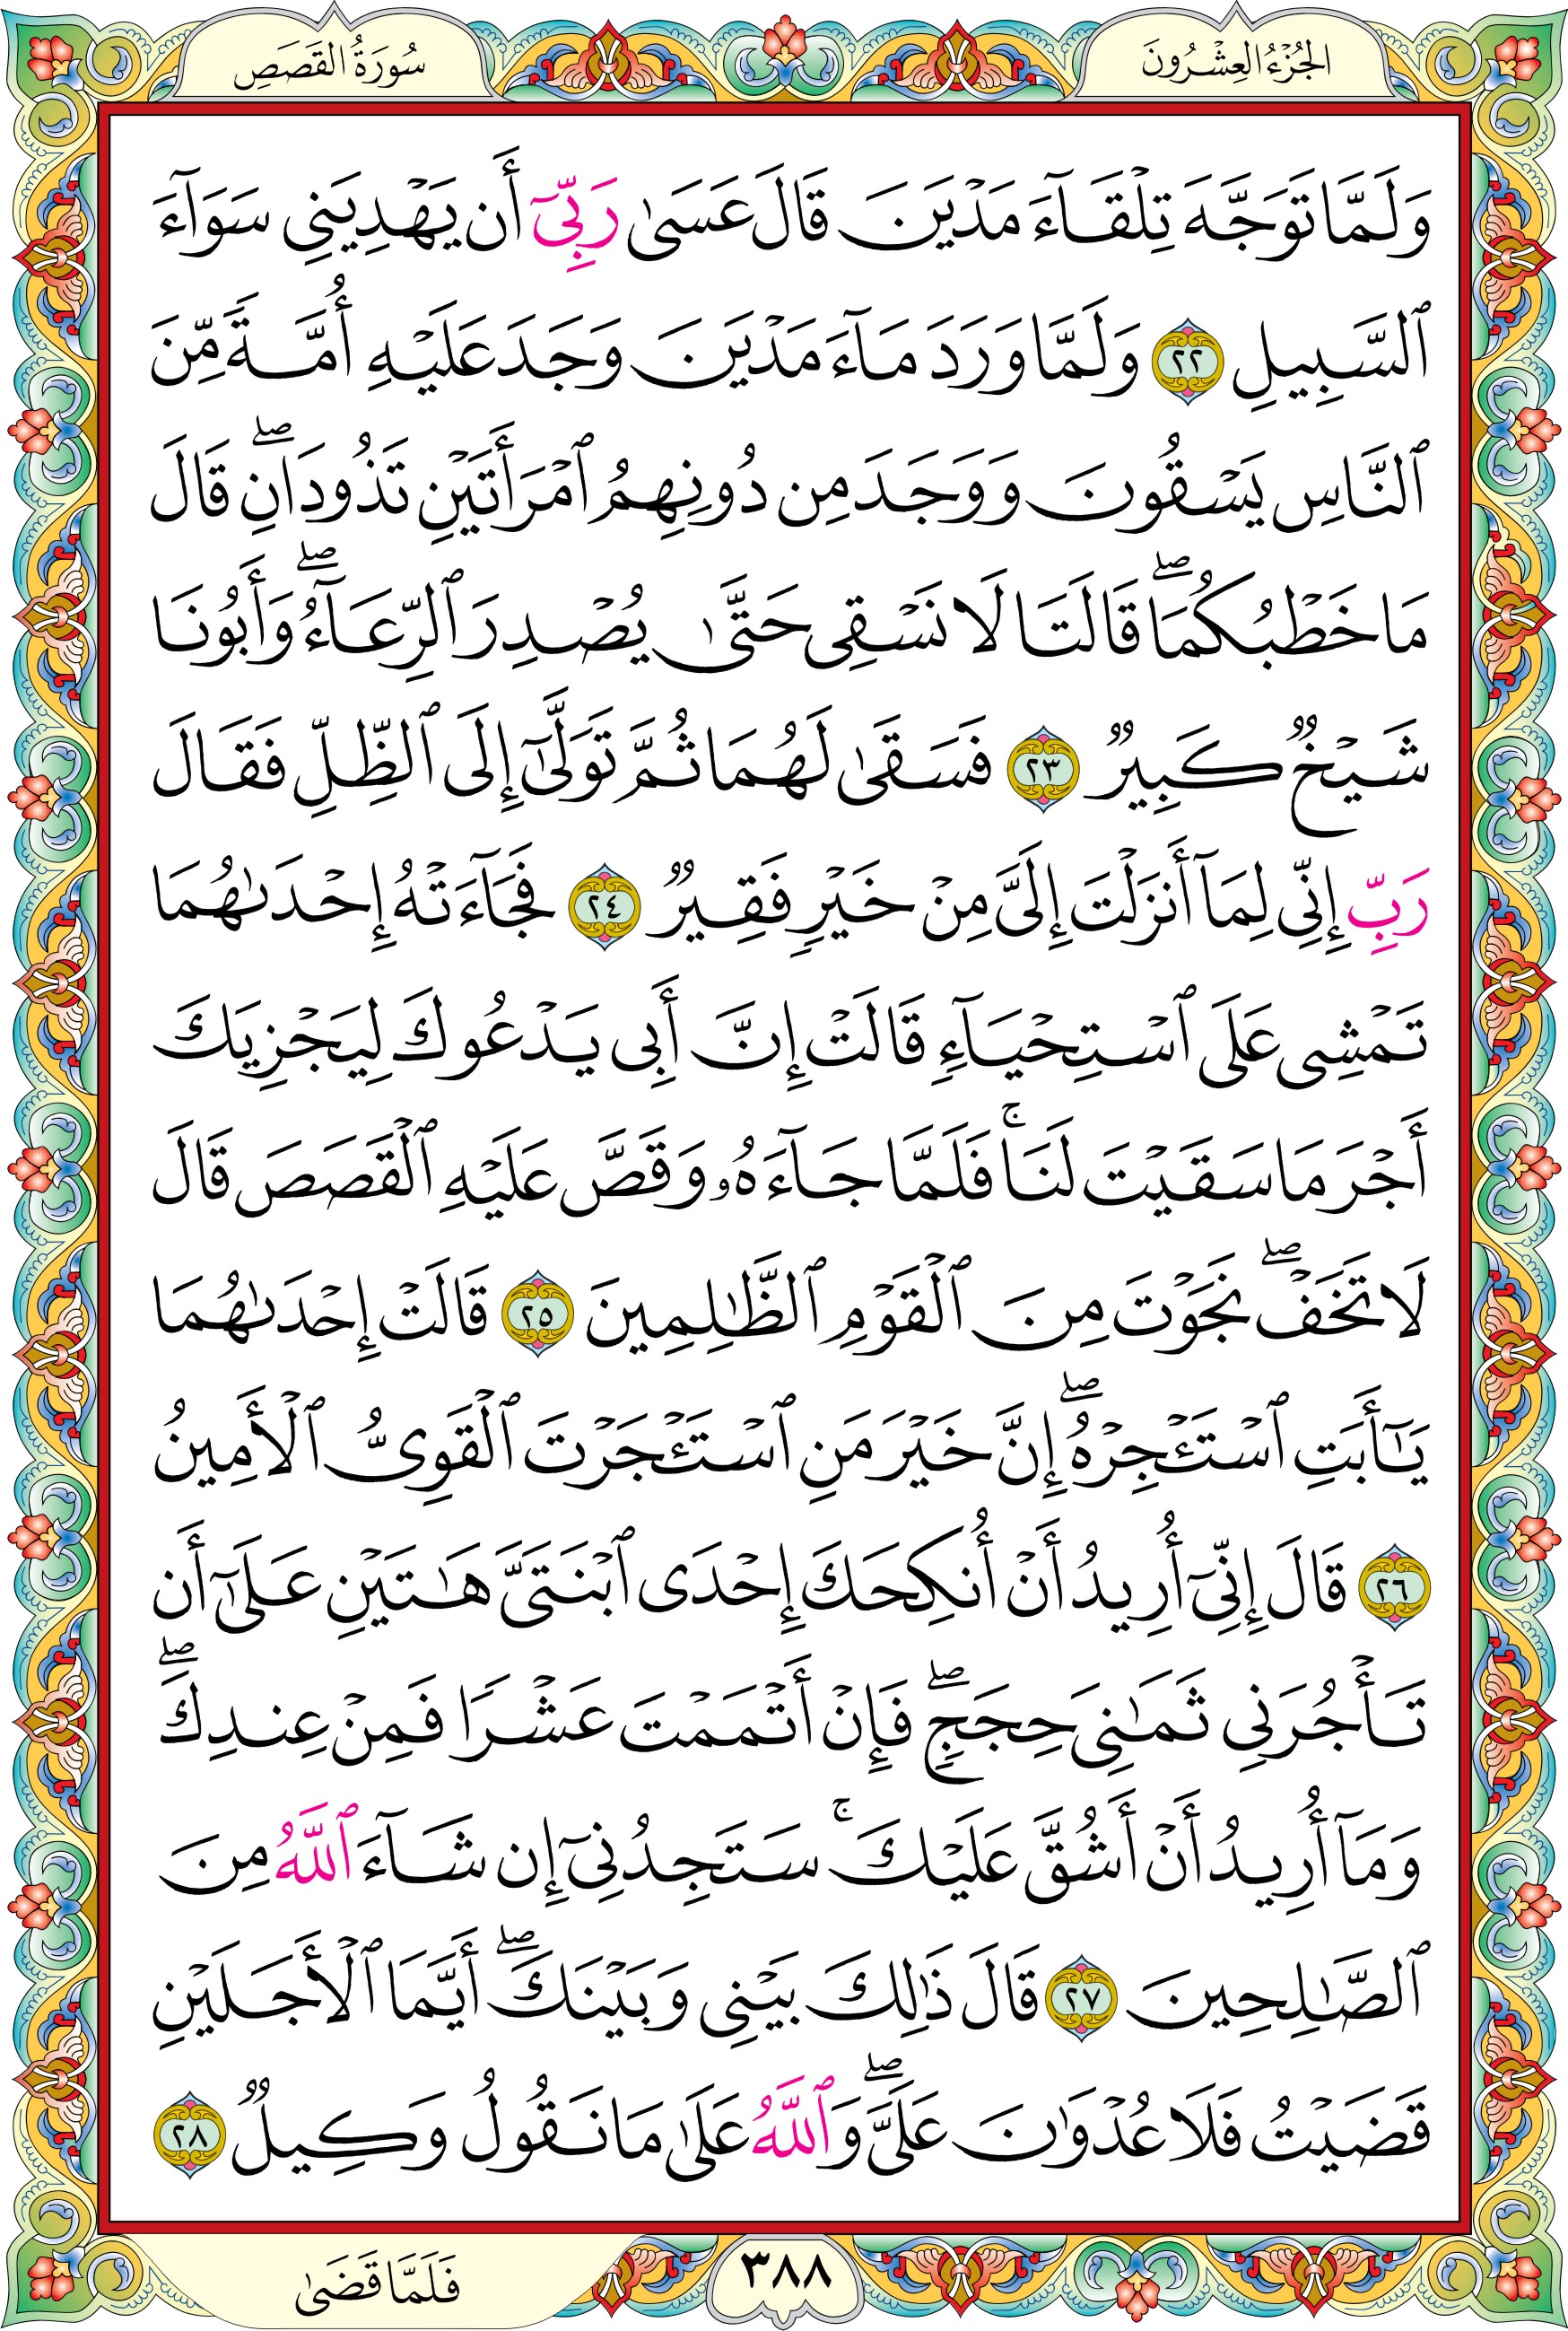 الجُزْءُ العِشْرُونَ
سُورَةُ القَصَصِ
وَلَمَّا تَوَجَّهَ تِلْقَآءَ مَدْيَنَ قَالَ عَسَىٰ رَبِّىٓ أَن يَهْدِيَنِى سَوَآءَ
ٱلسَّبِيلِ ٢٢ وَلَمَّا وَرَدَ مَآءَ مَدْيَنَ وَجَدَ عَلَيْهِ أُمَّةً مِّنَ
ٱلنَّاسِ يَسْقُونَ وَوَجَدَ مِن دُونِهِمُ ٱمْرَأَتَيْنِ تَذُودَانِ ۖ قَالَ
مَا خَطْبُكُمَا ۖ قَالَتَا لَا نَسْقِى حَتَّىٰ يُصْدِرَ ٱلرِّعَآءُ ۖ وَأَبُونَا
شَيْخٌ كَبِيرٌ ٢٣ فَسَقَىٰ لَهُمَا ثُمَّ تَوَلَّىٰٓ إِلَى ٱلظِّلِّ فَقَالَ
رَبِّ إِنِّى لِمَآ أَنزَلْتَ إِلَىَّ مِنْ خَيْرٍ فَقِيرٌ ٢٤ فَجَآءَتْهُ إِحْدَىٰهُمَا
تَمْشِى عَلَى ٱسْتِحْيَآءٍ قَالَتْ إِنَّ أَبِى يَدْعُوكَ لِيَجْزِيَكَ
أَجْرَ مَا سَقَيْتَ لَنَا ۚ فَلَمَّا جَآءَهُۥ وَقَصَّ عَلَيْهِ ٱلْقَصَصَ قَالَ
لَا تَخَفْ ۖ نَجَوْتَ مِنَ ٱلْقَوْمِ ٱلظَّٰلِمِينَ ٢٥ قَالَتْ إِحْدَىٰهُمَا
يَٰٓأَبَتِ ٱسْتَـْٔجِرْهُ ۖ إِنَّ خَيْرَ مَنِ ٱسْتَـْٔجَرْتَ ٱلْقَوِىُّ ٱلْأَمِينُ
٢٦ قَالَ إِنِّىٓ أُرِيدُ أَنْ أُنكِحَكَ إِحْدَى ٱبْنَتَىَّ هَٰتَيْنِ عَلَىٰٓ أَن
تَأْجُرَنِى ثَمَٰنِىَ حِجَجٍ ۖ فَإِنْ أَتْمَمْتَ عَشْرًا فَمِنْ عِندِكَ ۖ
وَمَآ أُرِيدُ أَنْ أَشُقَّ عَلَيْكَ ۚ سَتَجِدُنِىٓ إِن شَآءَ ٱللَّهُ مِنَ
ٱلصَّٰلِحِينَ ٢٧ قَالَ ذَٰلِكَ بَيْنِى وَبَيْنَكَ ۖ أَيَّمَا ٱلْأَجَلَيْنِ
قَضَيْتُ فَلَا عُدْوَٰنَ عَلَىَّ ۖ وَٱللَّهُ عَلَىٰ مَا نَقُولُ وَكِيلٌ ٢٨
٣٨٨
فَلَمَّا قَضَىٰ